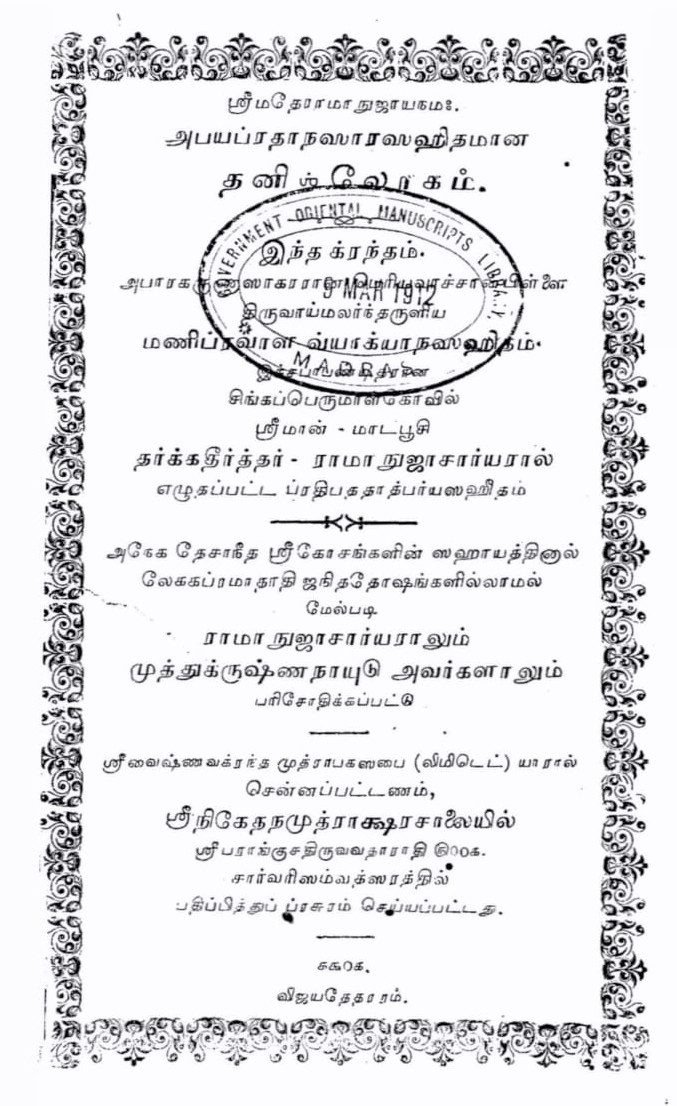 ஸ்ரீமதேராமாநுஜாயநம:.
அபயப்ரதாநஸாரஸஹிதமான
தனிஶ்லோகம்.
GOVERNMENT ORIENTAL MANUSCRIPTS LIBRARY
இந்த க்ரந்தம்.
9 MAR 1912
திருவாய்மலர்ந்தருளிய
மணிப்ரவாள வ்யாக்யாநஸஹிதம்.
MADRAS
சிங்கப்பெருமாள்கோவில்
ஸ்ரீமான் - மாடபூசி
தர்க்கதீர்த்தர் - ராமாநுஜாசார்யரால்
எழுதப்பட்ட ப்ரதிபததாத்பர்யஸஹிதம்
அநேக தேசாநீத ஸ்ரீகோசங்களின் ஸஹாயத்தினால்
லேககப்ரமாதாதி ஜநிததோஷங்களில்லாமல்
மேல்படி
ராமாநுஜாசார்யராலும்
முத்துக்ருஷ்ணநாயுடு அவர்களாலும்
பரிசோதிக்கப்பட்டு
ஸ்ரீவைஷ்ணவக்ரந்த முத்ராபகஸபை (லிமிடெட்) யாரால்
சென்னப்பட்டணம்,
ஸ்ரீநிகேதநமுத்ராக்ஷரசாலையில்
ஸ்ரீபராங்குசதிருவவதாராதி
சார்வரிஸம்வத்ஸரத்தில்
பதிப்பித்துப் ப்ரசுரம் செய்யப்பட்டது.
விஜயதேதராம்.